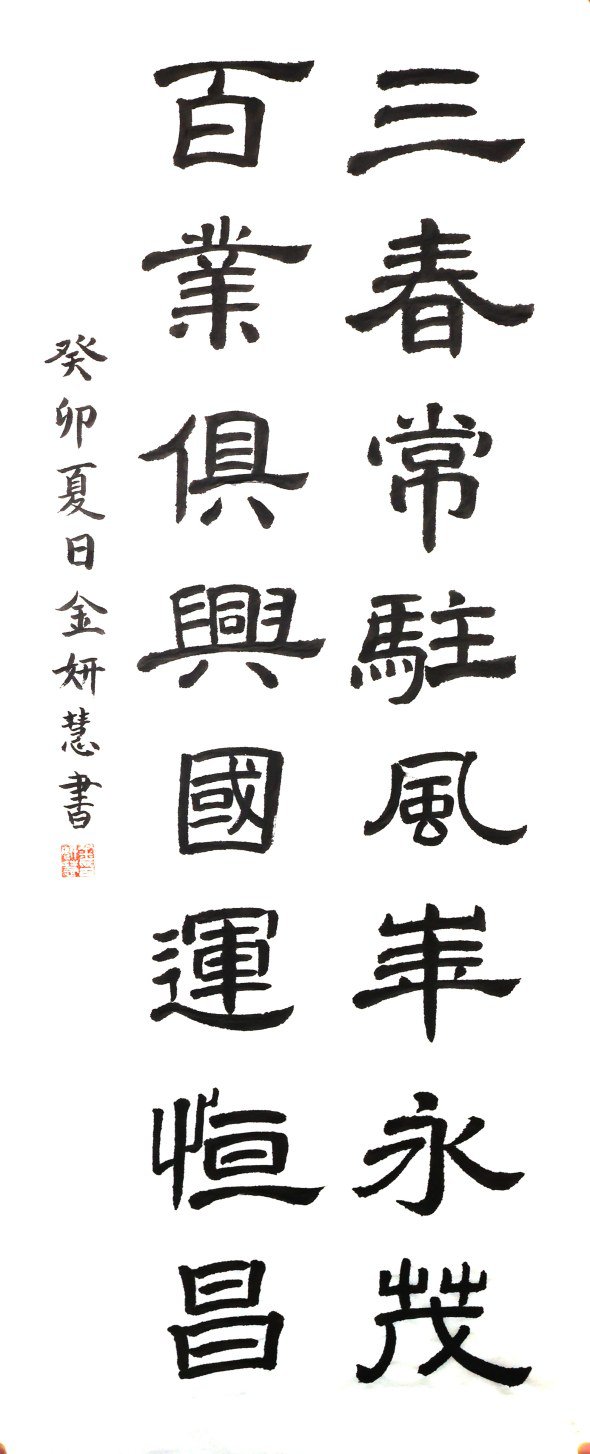 三春常駐風華永茂
百業俱興國運恒昌
癸卯夏日金妍慧書